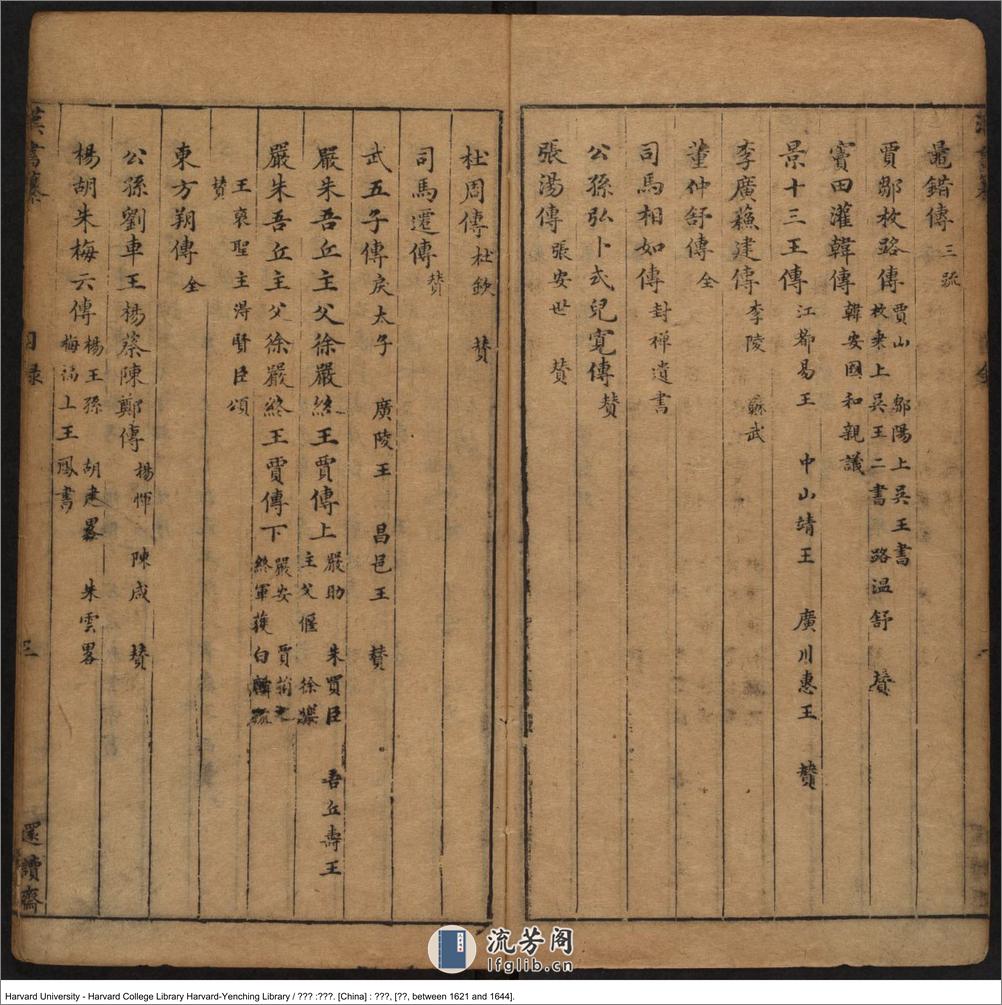 鼂錯傳 三疏
賈鄒枚路傳 賈山 鄒陽上吳王書
枚乘上吳王二書 路温舒 贊
竇田灌韓傳 韓安國和親議
景十三王傳 江都易王 中山靖王 廣川惠王 贊
李廣蘇建傳 李陵 蘇武
董仲舒傳 全
司馬相如傳 封禅遺書
公孫弘卜式兒寬傳 贊
張湯傳 張安世 贊
杜周傳 杜欽 贊
司馬遷傳 贊
武五子傳 戾太子 廣陵王 昌邑王 贊
嚴朱吾丘主父徐嚴終王賈傳上 嚴助 朱買臣 吾丘壽王
主父偃 徐樂
嚴朱吾丘主父徐嚴終王賈傳下 嚴安 賈捐之
終軍獲白麟疏
王褒聖主得賢臣頌
贊
東方朔傳 全
公孫劉車王楊蔡陳鄭傳 楊惲 陳咸 贊
楊胡朱梅云傳 楊王孫 胡建畧 朱雲畧
梅福上王鳳書
漢書纂 目録 三 還讀齋
流芳阁
lfglib.cn
Harvard University - Harvard College Library Harvard-Yenching Library / ??? :???. [China] : ???, [??, between 1621 and 1644].